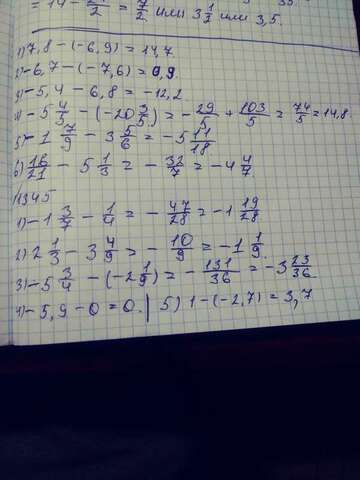 = 14 - 21/2 = 7/2 или 3 1/2 или 3,5.
1) 7,8 - (-6,9) = 14,7
2) -6,7 - (-7,6) = 0,9.
3) -5,4 - 6,8 = -12,2.
4) -5 4/5 - (-20 3/5) = -29/5 + 103/5 = 74/5 = 14,8.
5) -1 7/9 - 3 5/6 = -5 11/18
6) 16/21 - 5 1/3 = -32/7 = -4 4/7.
1345
1) -1 3/7 - 1/4 = -47/28 = -1 19/28
2) 2 1/3 - 3 4/9 = -10/9 = -1 1/9.
3) -5 3/4 - (-2 1/9) = -131/36 = -3 23/36
4) -5,9 - 0 = 0. | 5) 1 - (-2,7) = 3,7